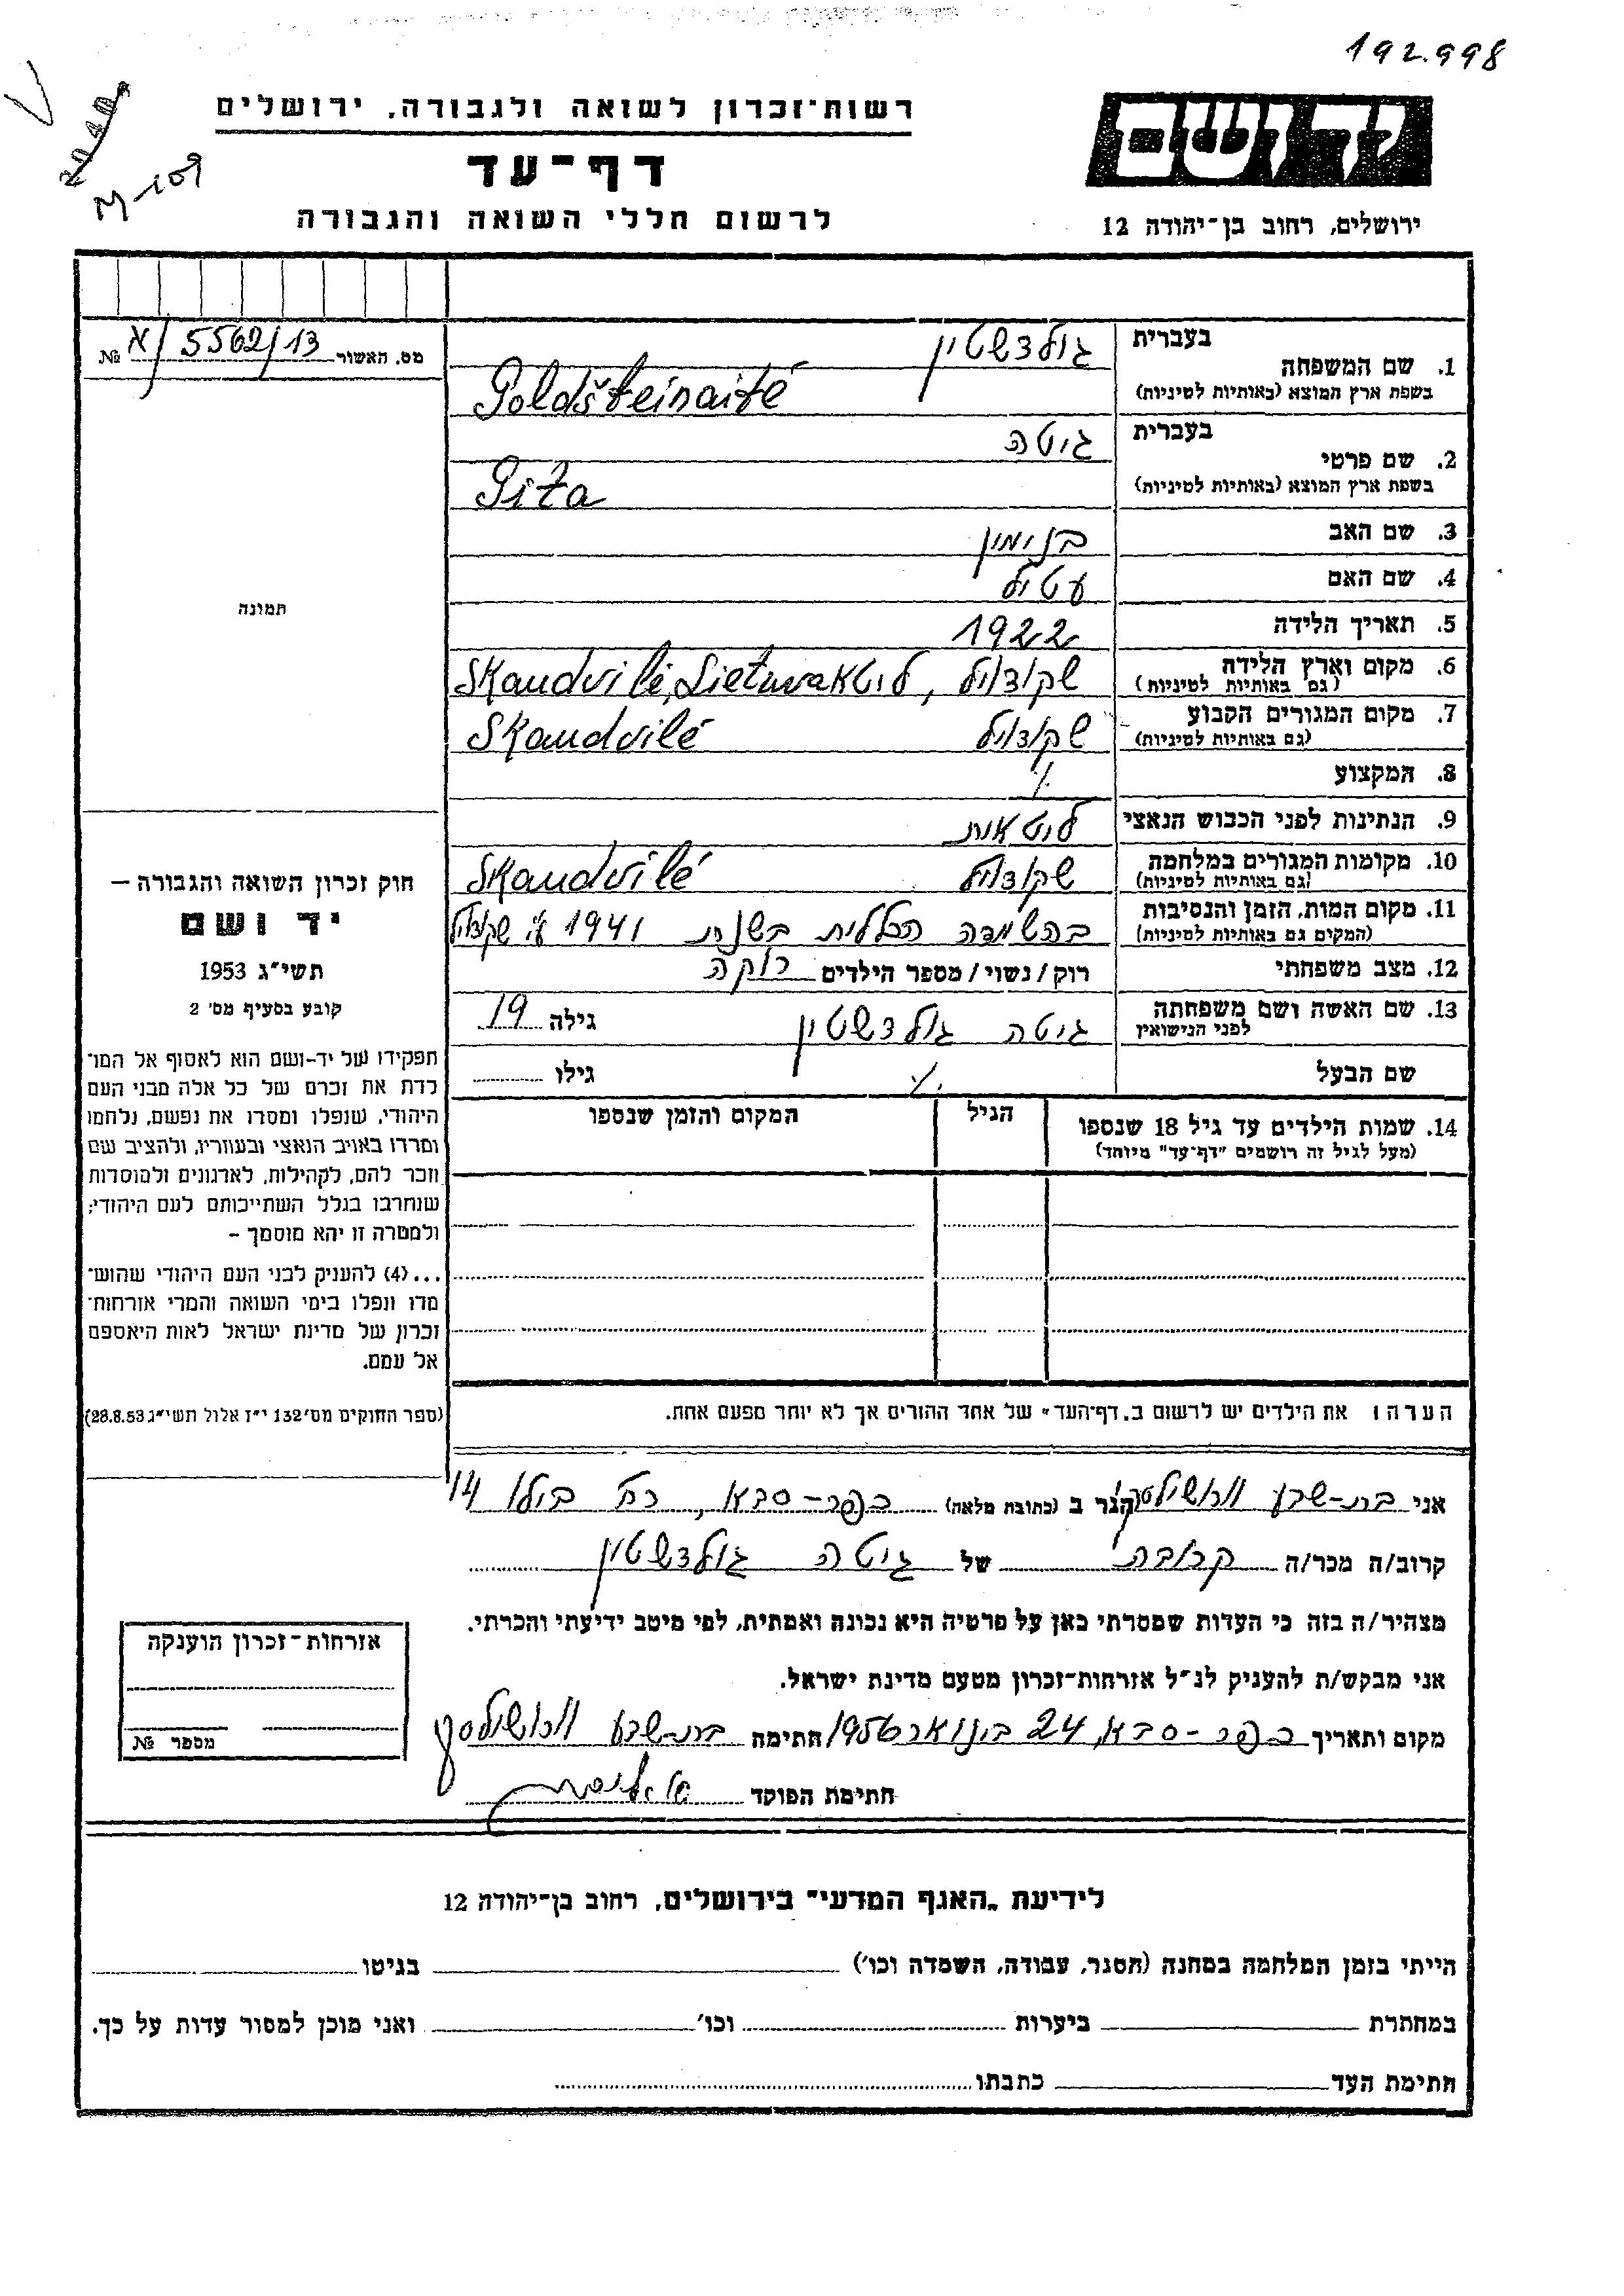 192.998
רשות־זכרון לשואה ולגבורה, ירושלים
יד ושם
דף־עד
M-109
לרשום חללי השואה והגבורה
ירושלים, רחוב בן־יהודה 12
מס. האשור 5562/13/א №
תמונה
חוק זכרון השואה והגבורה —
יד ושם
תשי"ג 1953
קובע בסעיף מס' 2
תפקידו של יד-ושם הוא לאסוף אל המו־
לדת את זכרם של כל אלה מבני העם
היהודי, שנפלו ומסרו את נפשם, נלחמו
ומרדו באויב הנאצי ובעוזריו, ולהציב שם
וזכר להם, לקהילות, לארגונים ולמוסדות
שנחרבו בגלל השתייכותם לעם היהודי;
ולמטרה זו יהא מוסמך –
...(4) להעניק לבני העם היהודי שהוש־
מדו ונפלו בימי השואה והמרי אזרחות־
זכרון של מדינת ישראל לאות היאספם
אל עמם.
(ספר החוקים מס' 132 י"ז אלול תשי"ג 28.8.53)
בעברית גולדשטין
1. שם המשפחה
בשפת ארץ המוצא (באותיות לטיניות) Goldšteinaitė
בעברית גיטה
2. שם פרטי
בשפת ארץ המוצא (באותיות לטיניות) Gita
3. שם האב בנימין
4. שם האם עטיל
5. תאריך הלידה 1922
6. מקום וארץ הלידה שקודויל, ליטא Skaudvilė, Lietuva
(גם באותיות לטיניות)
7. מקום המגורים הקבוע שקודויל Skaudvilė
(גם באותיות לטיניות)
8. המקצוע
9. הנתינות לפני הכבוש הנאצי ליטאית
10. מקומות המגורים במלחמה שקודויל Skaudvilė
(גם באותיות לטיניות)
11. מקום המות, הזמן והנסיבות בהשמדה הכללית בשנת 1941 ע"י שקודויל
(המקום גם באותיות לטיניות)
12. מצב משפחתי רוק/נשוי/מספר הילדים רוקה
13. שם האשה ושם משפחתה גיטה גולדשטין גילה 19
לפני הנישואין
שם הבעל גילו
14. שמות הילדים עד גיל 18 שנספו הגיל המקום והזמן שנספו
(מעל לגיל זה רושמים "דף־עד" מיוחד)
הערה: את הילדים יש לרשום ב"דף־העד" של אחד ההורים אך לא יותר מפעם אחת.
אני בת-שבע הגר ב (כתובת מלאה) כפר-סבא, רח' בילו 14
קרוב/ה מכר/ה קרובה של גיטה גולדשטין
מצהיר/ה בזה כי העדות שמסרתי כאן על פרטיה היא נכונה ואמתית, לפי מיטב ידיעתי והכרתי.
אני מבקש/ת להעניק לנ"ל אזרחות-זכרון מטעם מדינת ישראל.
מקום ותאריך כפר-סבא, 24 בינואר 1956 חתימה בת-שבע
חתימת הפוקד
אזרחות-זכרון הוענקה
מספר №
לידיעת "האגף המדעי" בירושלים, רחוב בן-יהודה 12
הייתי בזמן המלחמה במחנה (הסגר, עבודה, השמדה וכו') בגיטו
במחתרת ביערות וכו' ואני מוכן למסור עדות על כך.
חתימת העד כתבתו